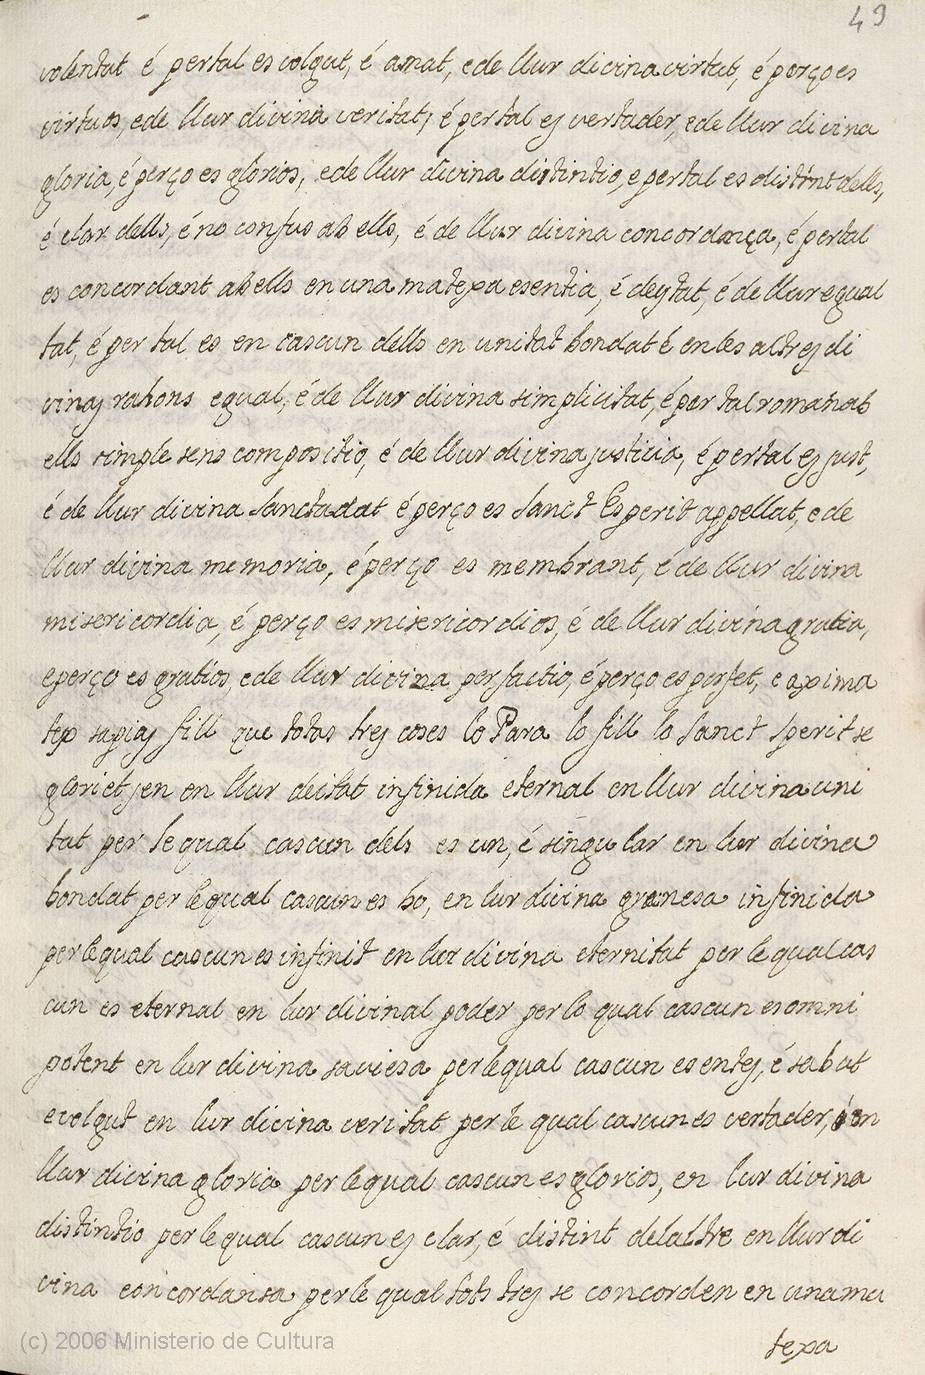 49
volentat é pertal es volgut, é amat, e de llur divina virtut, é perço es
virtuos, e de llur divina veritat, é per tal es vertader, e de llur divina
gloria, é perço es glorios, e de llur divina distintio, e pertal es distint dells,
é clar dells, é no confus ab ells, é de llur divina concordança, é pertal
es concordant ab ells en una matexa esentia, é deytat, é de llur egual
tat, é per tal es en cascun dells en unitat bondat é en les altres di
vinas rahons egual, é de llur divina simplicitat, é per tal roman ab
ells simple sens compositio, é de llur divina justicia, é pertal es just,
é de llur divina Sanctadat é perço es Sanct Esperit appellat, e de
llur divina memoria, é perço es membrant, é de llur divina
misericordia, é perço es misericordios, é de llur divina gratia,
e perço es gratios, e de llur divina perfactio, é perço es perfet, e axi ma
tex sapias fill que totas tres coses lo Para lo fill lo Sanct Sperit se
glorietjen en llur deitat infinida eternal en llur divina uni
tat per le qual cascun dels es un, é singular en lur divina
bondat per le qual cascun es bo, en lur divina granesa infinida
per le qual cascun es infinit en lur divina eternitat per le qual cas
cun es eternal en lur divinal poder per lo qual cascun es omni
potent en lur divina saviesa per le qual cascun es entes, é sabut
e volgut en lur divina veritat per le qual cascun es vertader, é en
llur divina gloria per le qual cascun es glorios, en lur divina
distintio per le qual cascun es clar, é distint delaltre en llur di
vina concordansa per le qual tots tres se concorden en una ma
texa
(c) 2006 Ministerio de Cultura